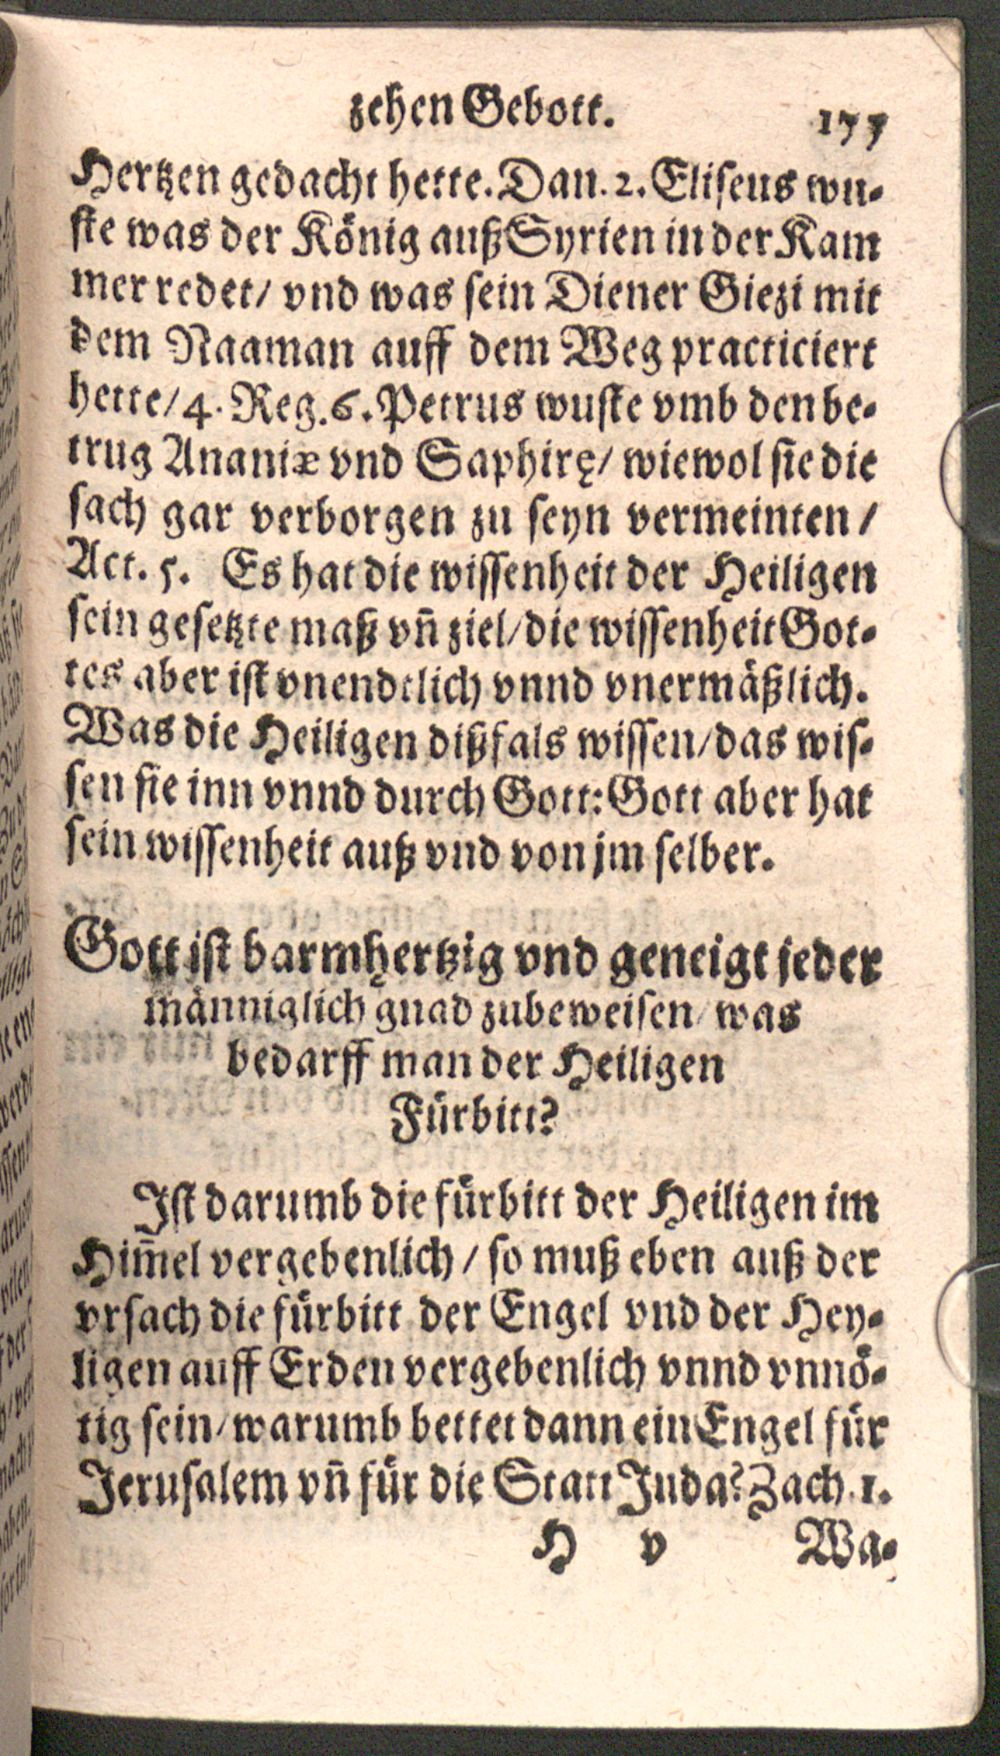 zehen Gebott. 177
Hertzen gedacht hette. Dan. 2. Eliseus wu-
ste was der König auß Syrien in der Kam
mer redet / vnd was sein Diener Giezi mit
dem Naaman auff dem Weg practiciert
hette / 4. Reg. 6. Petrus wuste vmb den be-
trug Ananiæ vnd Saphirę / wiewol sie die
sach gar verborgen zu seyn vermeinten /
Act. 5. Es hat die wissenheit der Heiligen
sein gesetzte maß vñ ziel / die wissenheit Got-
tes aber ist vnendtlich vnnd vnermäßlich.
Was die Heiligen dißfals wissen / das wis-
sen sie inn vnnd durch Gott: Gott aber hat
sein wissenheit auß vnd von jm selber.
Gott ist barmhertzig vnd geneigt jeder
männiglich gnad zubeweisen / was
bedarff man der Heiligen
Fürbitt?
Ist darumb die fürbitt der Heiligen im
Him̃el vergebenlich / so muß eben auß der
vrsach die fürbitt der Engel vnd der Hey-
ligen auff Erden vergebenlich vnnd vnnö-
tig sein / warumb bettet dann ein Engel für
Jerusalem vñ für die Statt Juda? Zach. 1.
H v Wa-